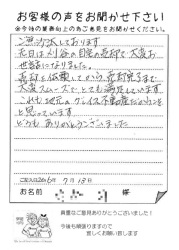 お客様の声をお聞かせ下さい
※今後の業務向上の為ご意見をお聞かせください。
ご無沙汰しております。
先日は刈谷の自宅の売却で大変お
世話になりました。
売却を依頼してから、売却完了まで
大変スムーズで、とても満足しています。
これも地元の
不動産だからこそ
と思っています。
どうも ありがとうございました。
7月13日
お名前 様
貴重なご意見ありがとうございました！
今後も頑張りますので
宜しくお願い致します